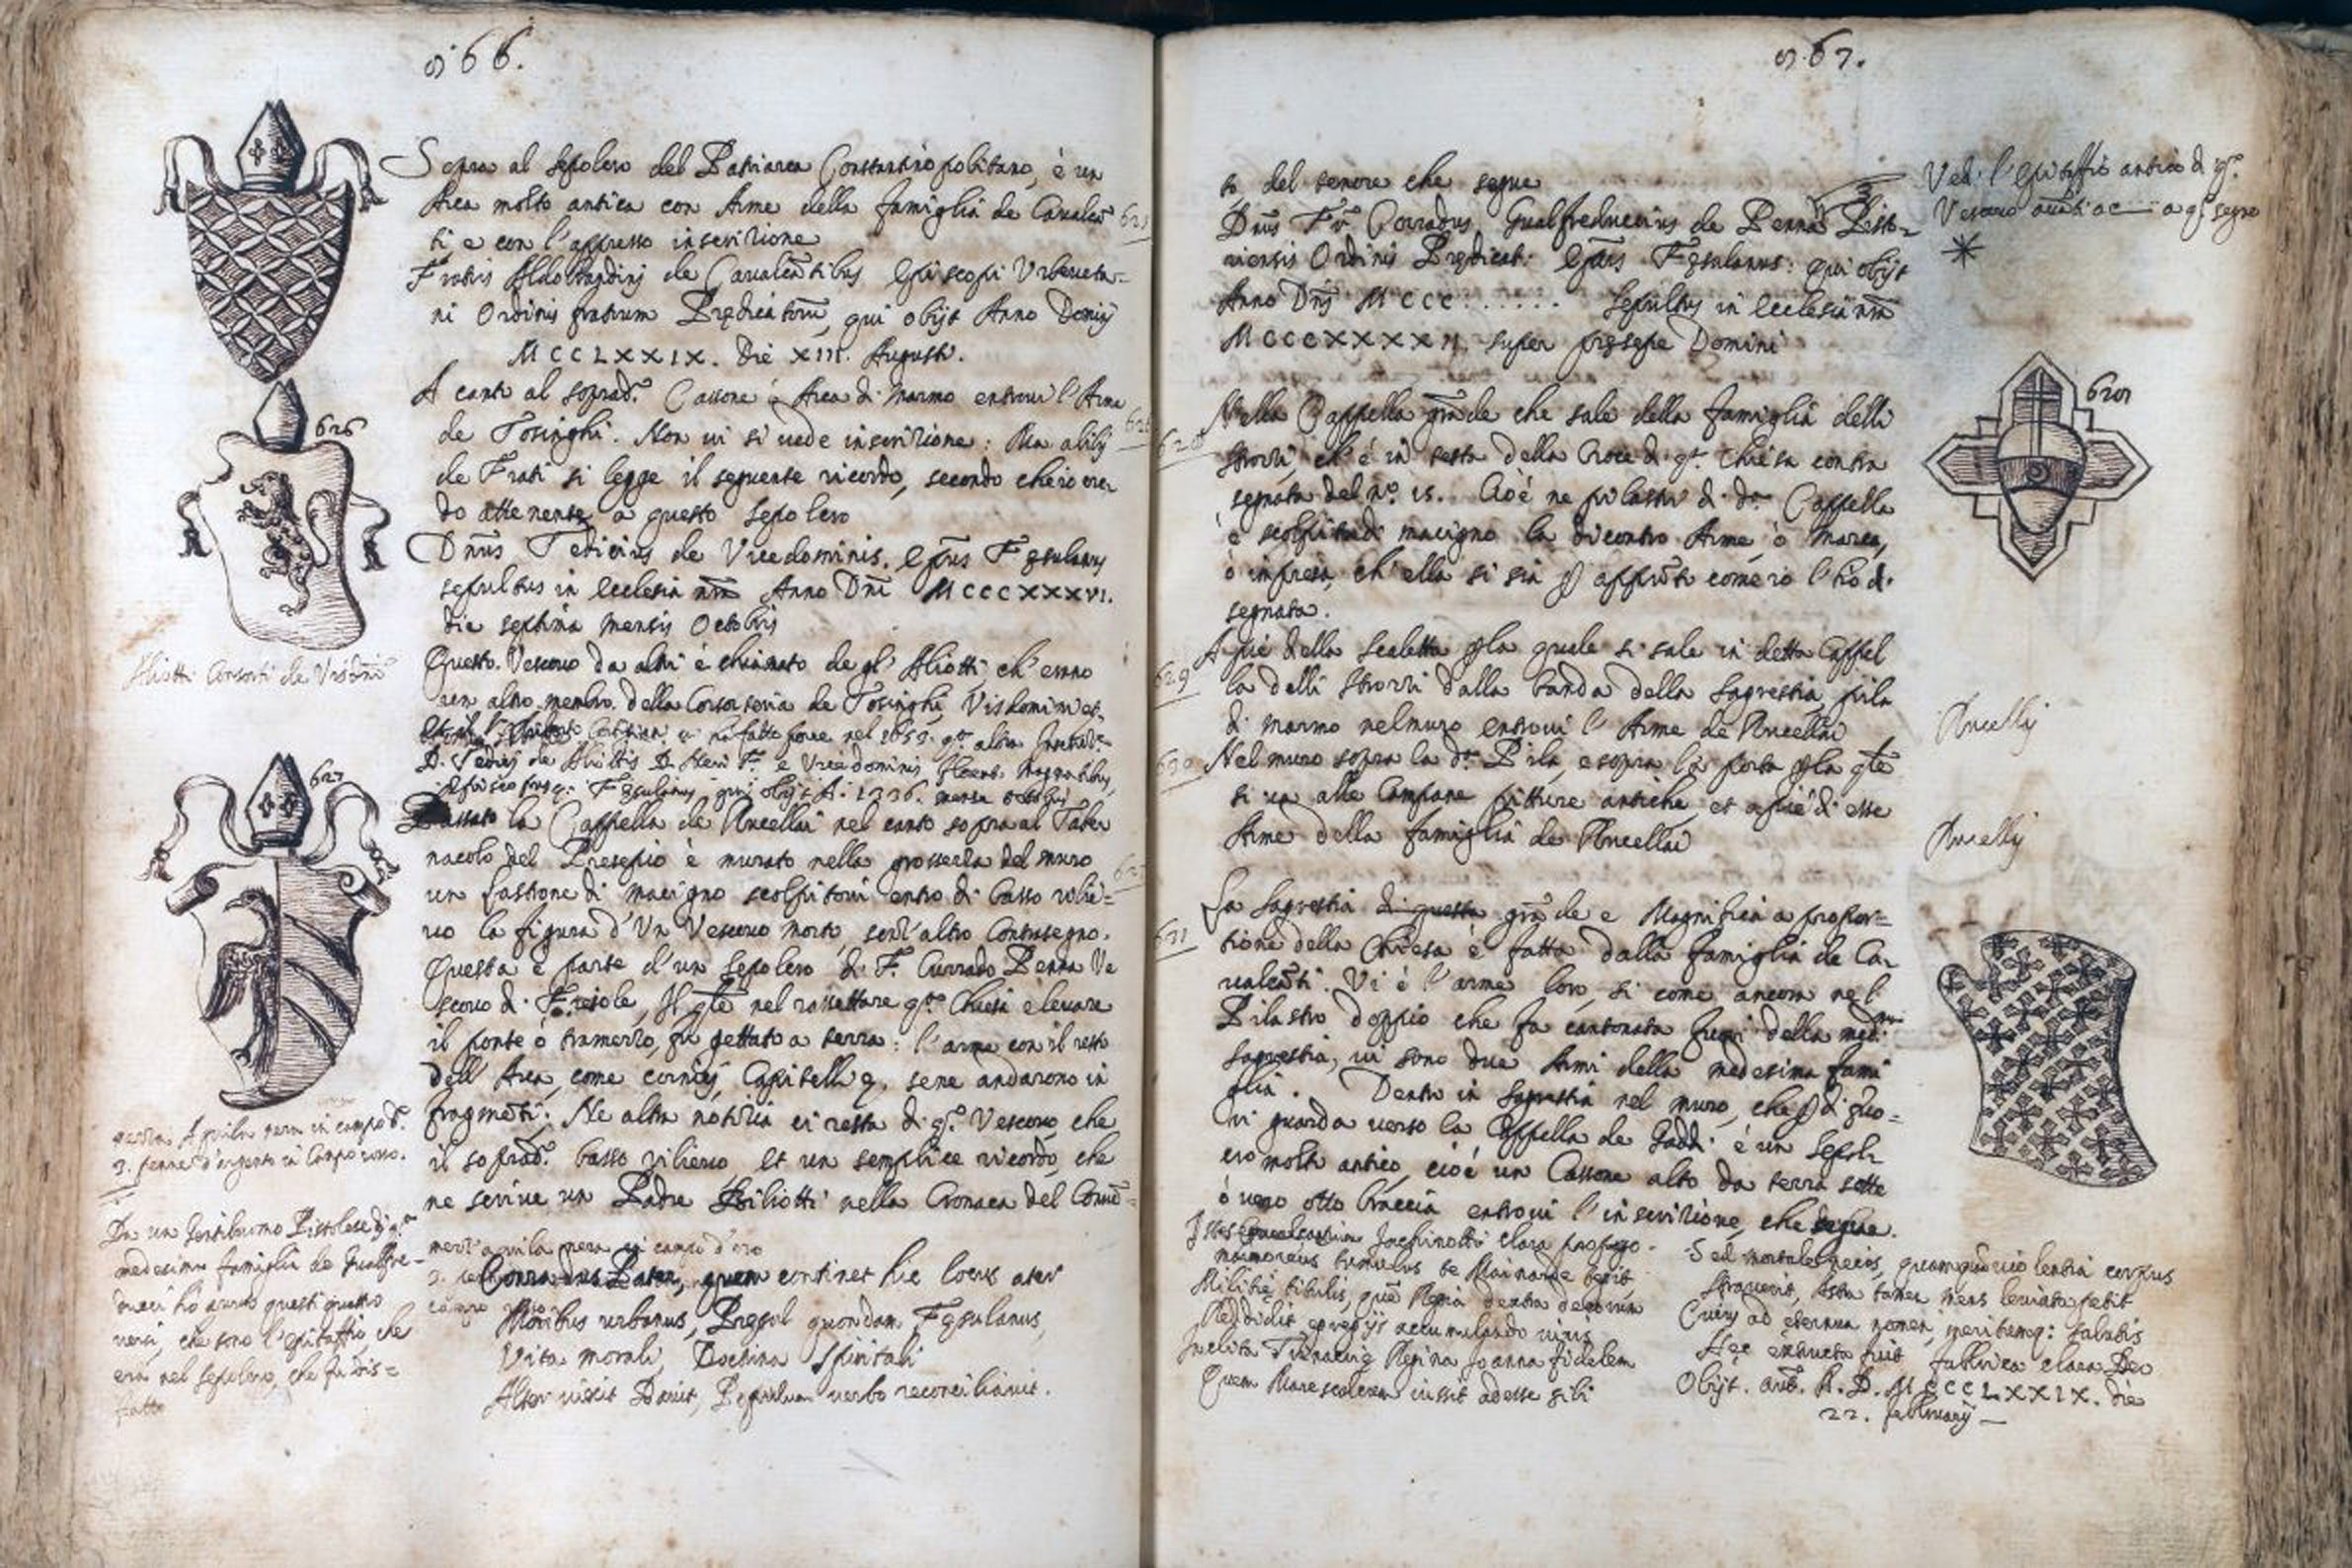 566.
Sopra al sepolcro del Patriarca Constantinopolitano, è un
Arca molto antica con Arme della famiglia de Cavalcā
ti e con l'appresso inscrizione
Fratris Aldobrandinj de Cavalcātibus Episcopi Urbeveta=
ni Ordinis fratrum Prędicatorū, qui obijt Anno Domini
MCCLXXIX. Die XIII. Augusti.
A canto al soprad.º Cassone ò Arca di Marmo entrovi l'Arme
de Tosinghi. Non vi si vede inscrizione: Ma
de Frati si legge il seguente ricordo, secondo che io cre
do attenente a questo sepolcro
Dn̄us Tedicius de Vicedominis. Ep̄us Fęsulanus
sepultus in Ecclesia nr̄a Anno Dn̄i MCCCXXXVI.
die septima mensis Octobris
Questo Vescovo da altri è chiamato de gl' Aliotti ch' erano
un altro membro della Consorteria de Tosinghi, Visdomini et.
fatto porre nel 1653. altra
D. Tedicij de Aliottis D. e Vicedominis
Fęsulanus, qui obijt A. 1336. mense octobris
Passato la Cappella de Rucellai nel canto sopra al Taber
nacolo del Presepio è murato nella grossezza del muro
un lastrone di macigno scolpitovi entro di basso rilie=
vo la figura d'un Vescovo morto senz'altro contrasegno.
Questa è parte d'un sepolcro di F. Currado Penna Ve
scovo di Fiesole, Il q̄le nel rassettare q.ta Chiesa e levare
il ponte ò tramezzo, fu gettato a terra: l'arme con il resto
dell' Arca, come cornicj, Capitelli ę. sene andarono in
fragmēti. Ne altra notitia ci resta di q.º Vescovo, che
il soprad.º basso rilievo, et un semplice ricordo, che
ne scrive un Padre Biliotti nella Cronaca del Convē=
mezz'aquila nera in campo d'oro
Corradus Pater, quem continet hic locus ater
campo rosso
Moribus urbanus, Pręsul quondam Fęsulanus,
Vita morali, Doctrina spiritali
Alter vixit David, Populum verbo reconciliavit.
626
Aliotti Consorti de Visdn̄i
627
Aquila nera in campo d'
3. penne d'argento in Campo rosso.
Da un Gentilhuomo Pistolese di q.ta
medesima famiglia de Gualfre=
ducci ho avuto questi quattro
versi, che sono l'epitaffio, che
era nel sepolcro, che fu dis=
fatto
625
626
627
567.
to del tenore che segue
Dn̄us Fr̄. Corradus Gualfreduccius de Penna Pisto=
riensis Ordinis Prędicat: Ep̄us Fęsulanus: qui obijt
Anno Dn̄i MCCC...... Sepultus in Ecclesia nr̄a
MCCCXXXXII. super pręsepe Domini
Ved. l'Epitaffio antico di q.º
Vescovo a q.º segno
*
628
Nella Cappella grāde che sale della famiglia delli
Strozzi, ch' è in testa della Croce di q.ta Chiesa contra
segnata del nº 15. Cioè ne pilastri di d.ª Cappella
è scolpita di macigno la dicontro Arme, ò marca,
ò impresa, ch' ella si sia p appūto come io l'ho di
segnata.
628
629
A piè della scaletta p la quale si sale in detta Cappel
la delli Strozzi dalla banda della Sagrestia, pila
di marmo nel muro entrovi l'Arme de Rucellai
Rucellij
630
Nel muro sopra la d.ª Pila, e sopra la porta p la q̄le
si va alle Campane pitture antiche, et a piè di esse
Arme della famiglia de Rucellai
Rucellij
631
La Sagrestia di questa grāde e Magnifica a propor=
tione della Chiesa è fatta dalla famiglia de Ca=
valcāti. Vi è l'arme loro, si come ancora nel
Pilastro doppio che fa cantonata fuori della med.ma
sagrestia, vi sono due Armi della medesima fami
glia. Dentro in sagrestia nel muro, che p di fuo=
ri guarda verso la Cappella de Gaddi è un sepol
cro molto antico, cioè un Cassone alto da terra sette
ò vero otto braccia entrovi l'inscrizione, che segue.
Jachinotti clara propago
marmoreus tumulus te Mainarde tegit,
Militię titulis, quē Regia dextra decorum
Reddidit egregijs accumulando viris
Inclita Trinacrię Regina Joanna fidelem
Quem Marescalcum iussit adesse sibi
Sed mortale necis, quamquā violentia corpus
Straverit, Astra tamen mens levitata petit
Cuius ad ęternum nomen, meritumq: salutis
Hęc extructa fuit fabrica clara Deo
Obijt. MCCCLXXIX. die
22. februarij—